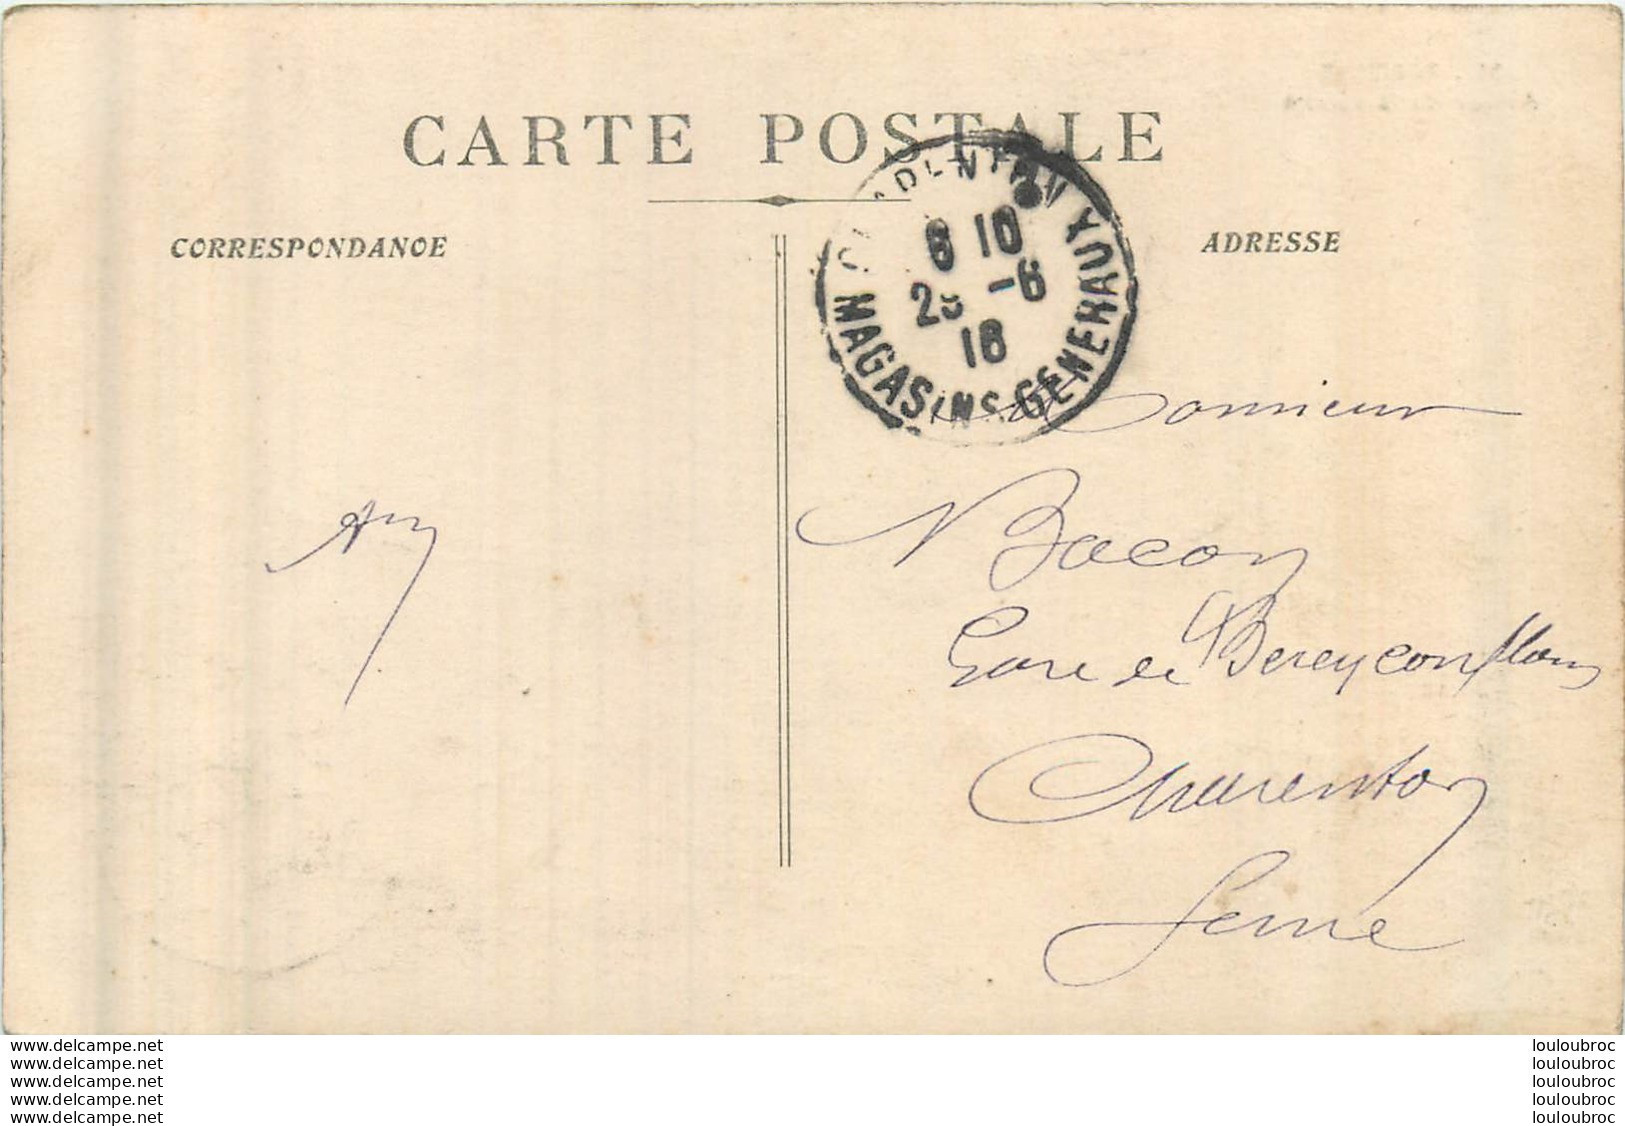 CARTE POSTALE
CORRESPONDANCE
ADRESSE
CHARENTON MAGASINS GENERAUX
6 10
25 -6
18
Monsieur
Bacon
Gare de Bercy conflans
Charenton
Seine
www.delcampe.net
www.delcampe.net
www.delcampe.net
www.delcampe.net
www.delcampe.net
louloubroc
louloubroc
louloubroc
louloubroc
louloubroc